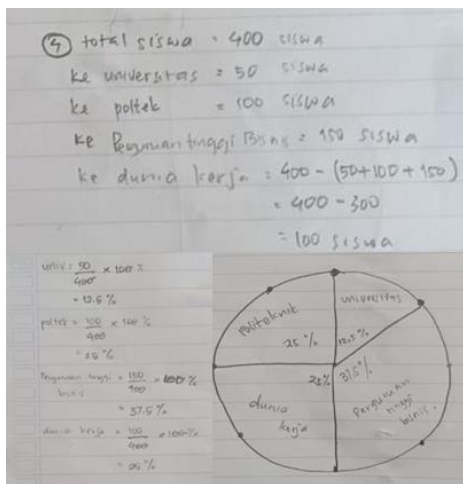 ④ total siswa = 400 siswa
ke universitas = 50 siswa
ke poltek = 100 siswa
ke Perguruan tinggi Bisnis = 150 siswa
ke dunia kerja = 400 - (50+100+150)
= 400 - 300
= 100 siswa
univ = 50/400 x 100 %
= 12.5 %
poltek = 100/400 x 100 %
= 25 %
Perguruan tinggi bisnis = 150/400 x 100 %
= 37.5 %
dunia kerja = 100/400 x 100 %
= 25 %
universitas
12.5 %
politeknik
25 %
25%
dunia
kerja
37.5%
Perguruan
tinggi
bisnis.